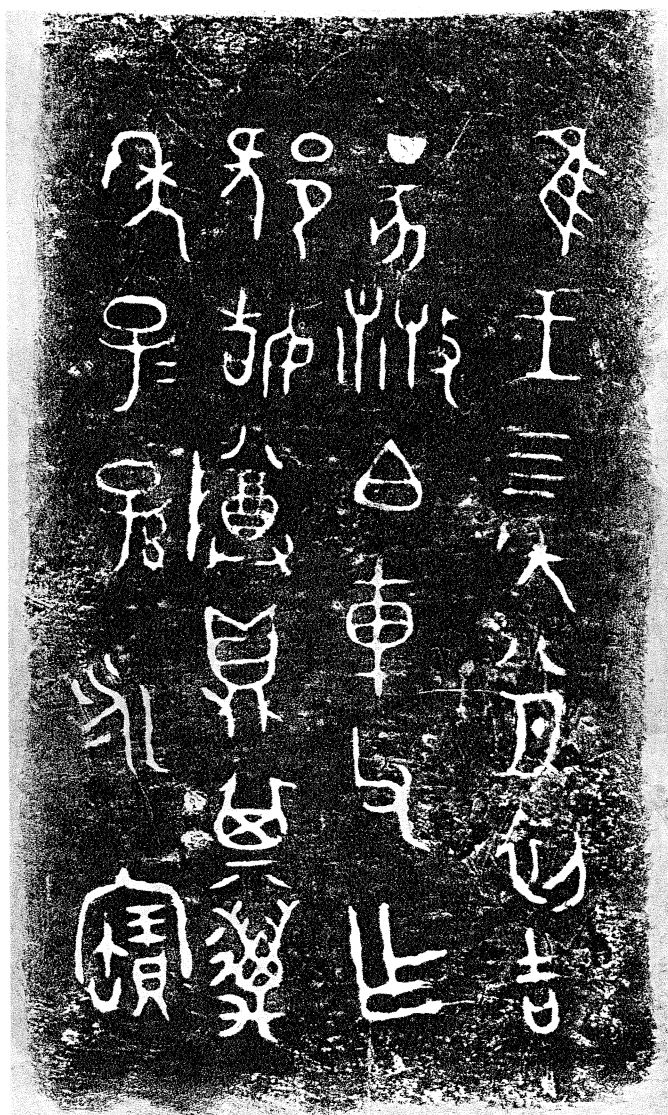 隹王四年八月初吉
丁亥散白車父乍
邪姞𬯚鼎其萬
年子=孫永寶